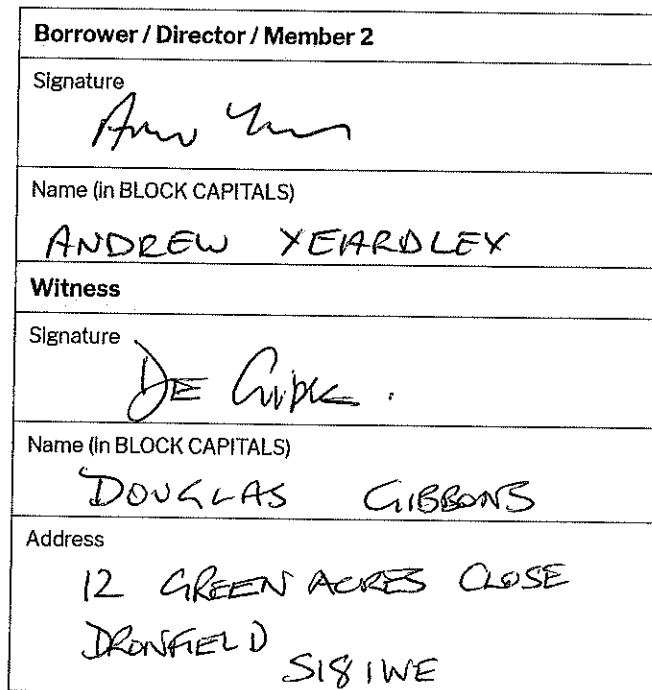 Borrower / Director / Member 2
Signature
Name (in BLOCK CAPITALS)
ANDREW YEARDLEY
Witness
Signature
Name (in BLOCK CAPITALS)
DOUGLAS GIBBONS
Address
12 GREEN ACRES CLOSE
DRONFIELD
S18 1WE